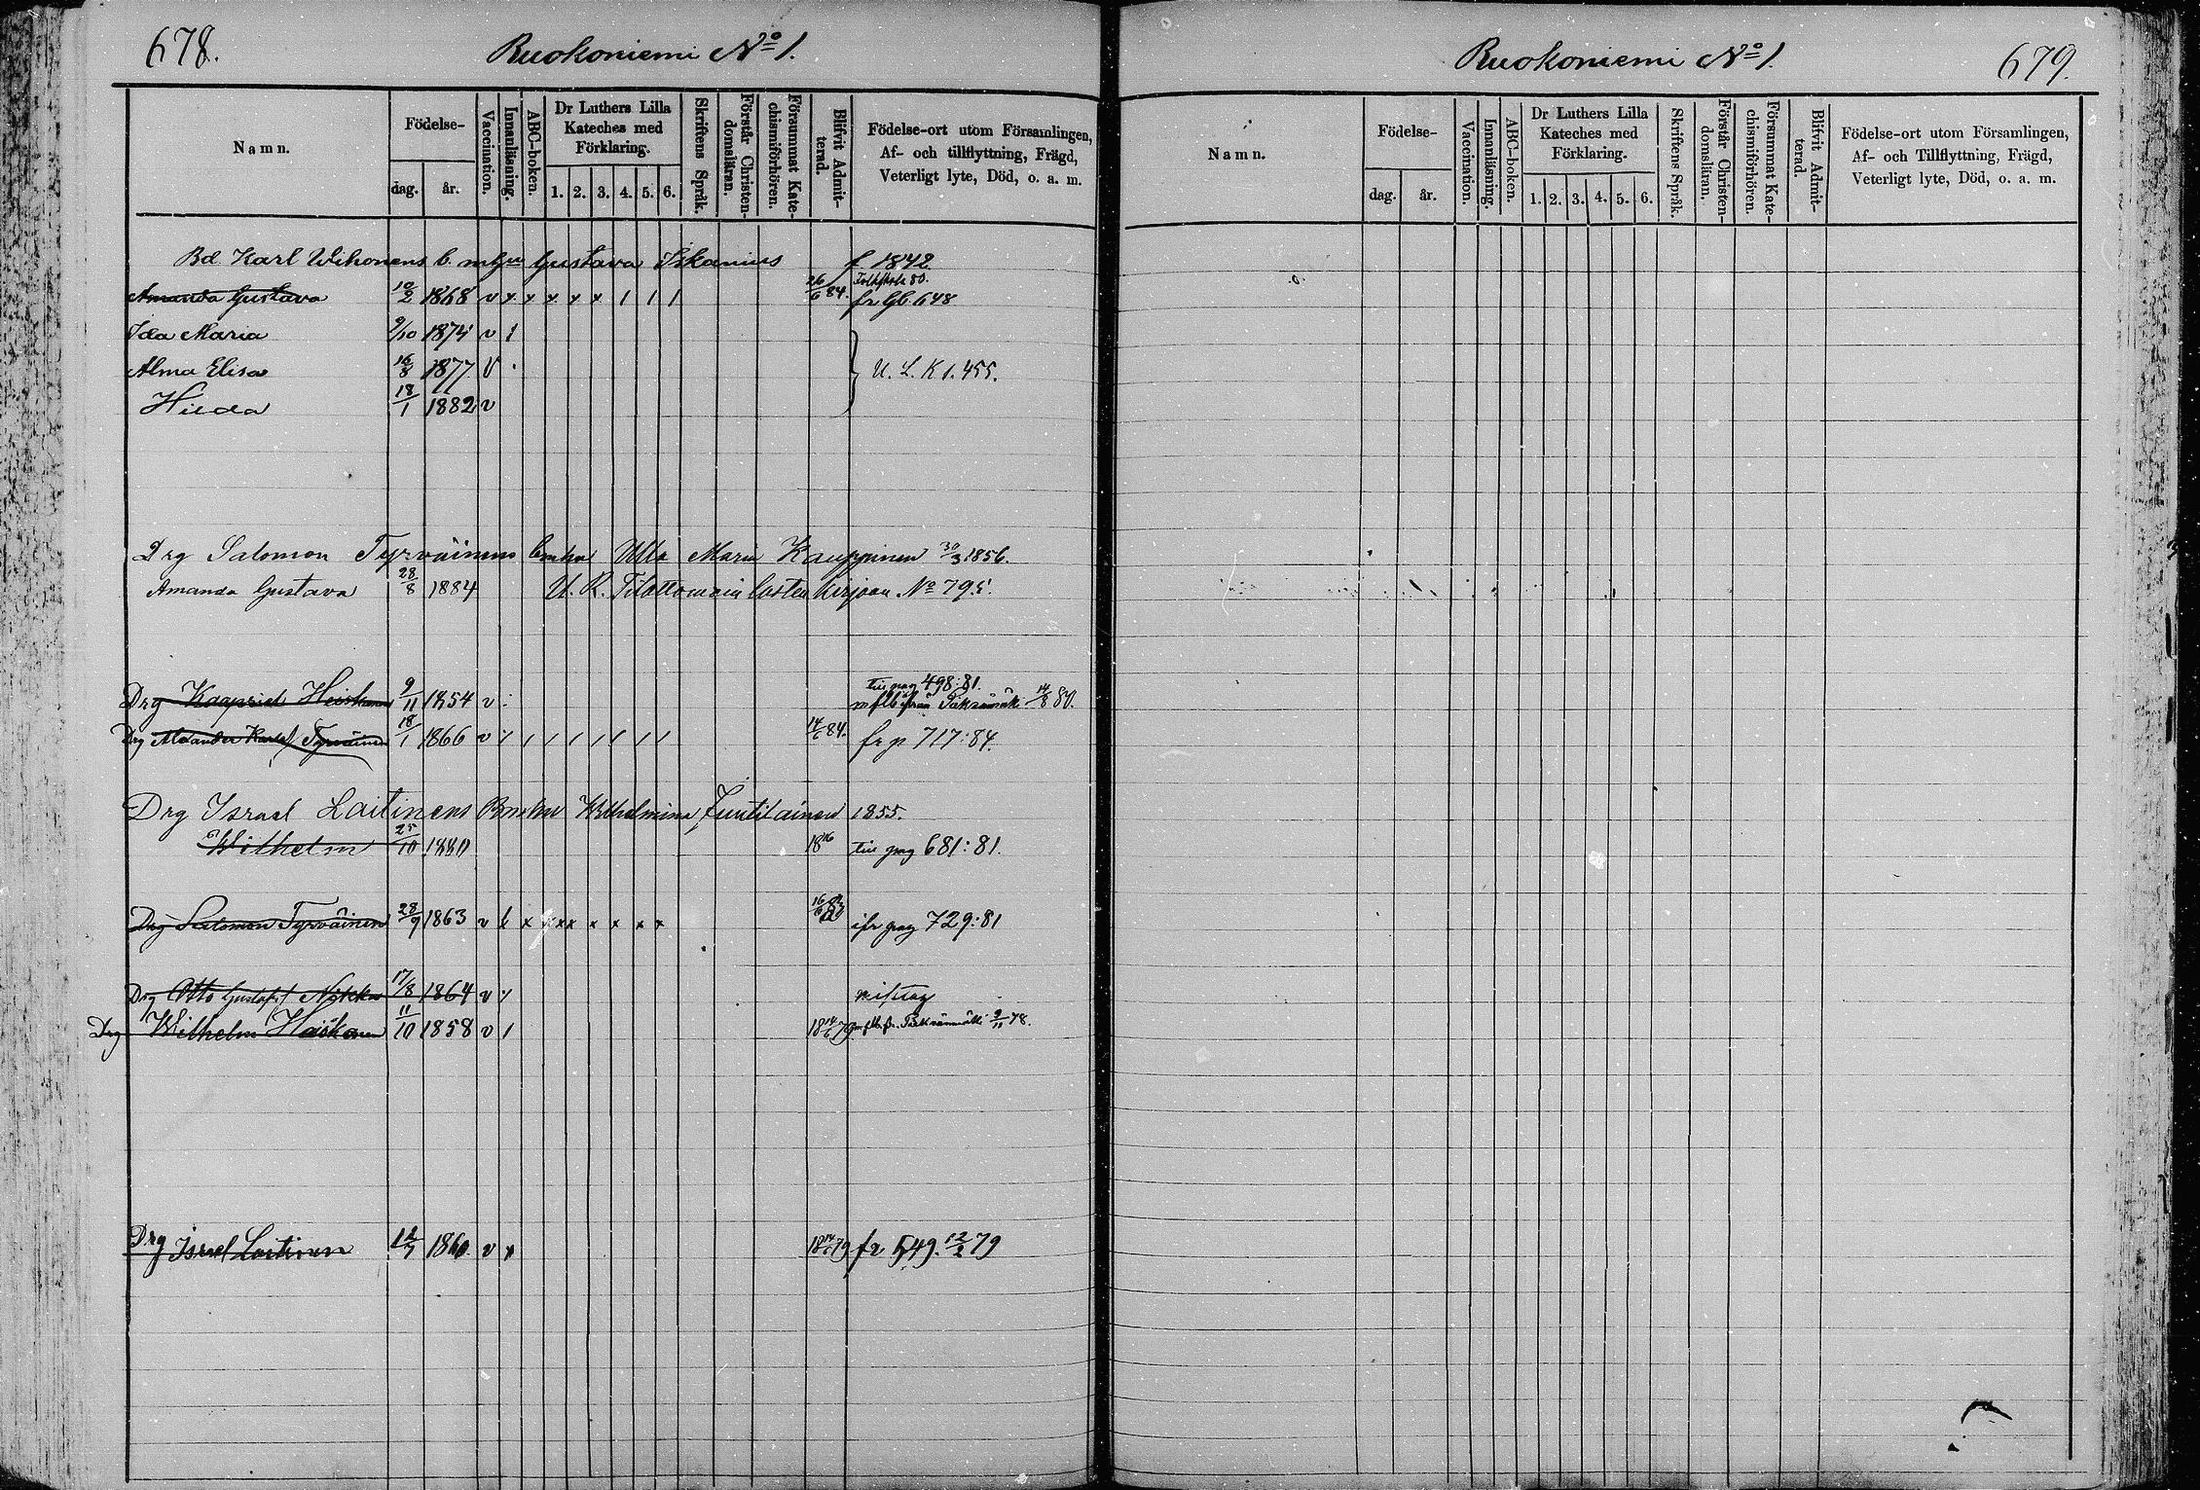 678.
Ruokoniemi No 1.
Namn.
Födelse-
dag.
år.
Vaccination.
Innanläsning.
ABC-boken.
Dr Luthers Lilla
Kateches med
Förklaring.
1. 2. 3. 4. 5. 6.
Skriftens Språk.
Förstår Christen-
domsläran.
Försummat Kate-
chismiförhören.
Blifvit Admit-
terad.
Födelse-ort utom Församlingen,
Af- och tillflyttning, Frägd,
Veterligt lyte, Död, o. a. m.
Bd Karl Wihonens b. Gustava f 1842
Amanda Gustava 10/2 1868 v x x x x x / / / 26/6 84. fr Gb 648
Ida Maria 9/10 1874 v 1
Alma Elisa 16/8 1877 v U. L. K 1. 455.
Hilda 18/1 1882 v
Drg Salomon Tyrväinens Enka Ulla Maria Kauppinen 30/3 1856.
Amanda Gustava 28/8 1884 U. R. Tilattomain lasten kirjaan No 795.
Drg Kaapriel Heiskanen 9/11 1854 v tii pag 498:81. 14/8 80.
Drg Alexander Tyrväinen 18/1 1866 v / / / / / / / / 14/6 84. fr p 717:84.
Drg Israel Laitinens Wilhelmina Juutilainen 1855.
Wilhelm 25/10 1880 18 tii pag 681:81.
Drg Salomon Tyrväinen 28/9 1863 v x x x x x x x x 16/6 ifr pag 729:81
Drg Otto Gustaf Nykka 17/8 1864 v
Drg Wilhelm Heiskanen 11/10 1858 v 1 18 79 9/11 78.
Drg Israel Laitinen 12/7 1860 v x 18 79 fr 549. 12/2 79
Ruokoniemi No 1.
679.
Namn.
Födelse-
dag.
år.
Vaccination.
Innanläsning.
ABC-boken.
Dr Luthers Lilla
Kateches med
Förklaring.
1. 2. 3. 4. 5. 6.
Skriftens Språk.
Förstår Christen-
domsläran.
Försummat Kate-
chismiförhören.
Blifvit Admit-
terad.
Födelse-ort utom Församlingen,
Af- och Tillflyttning, Frägd,
Veterligt lyte, Död, o. a. m.